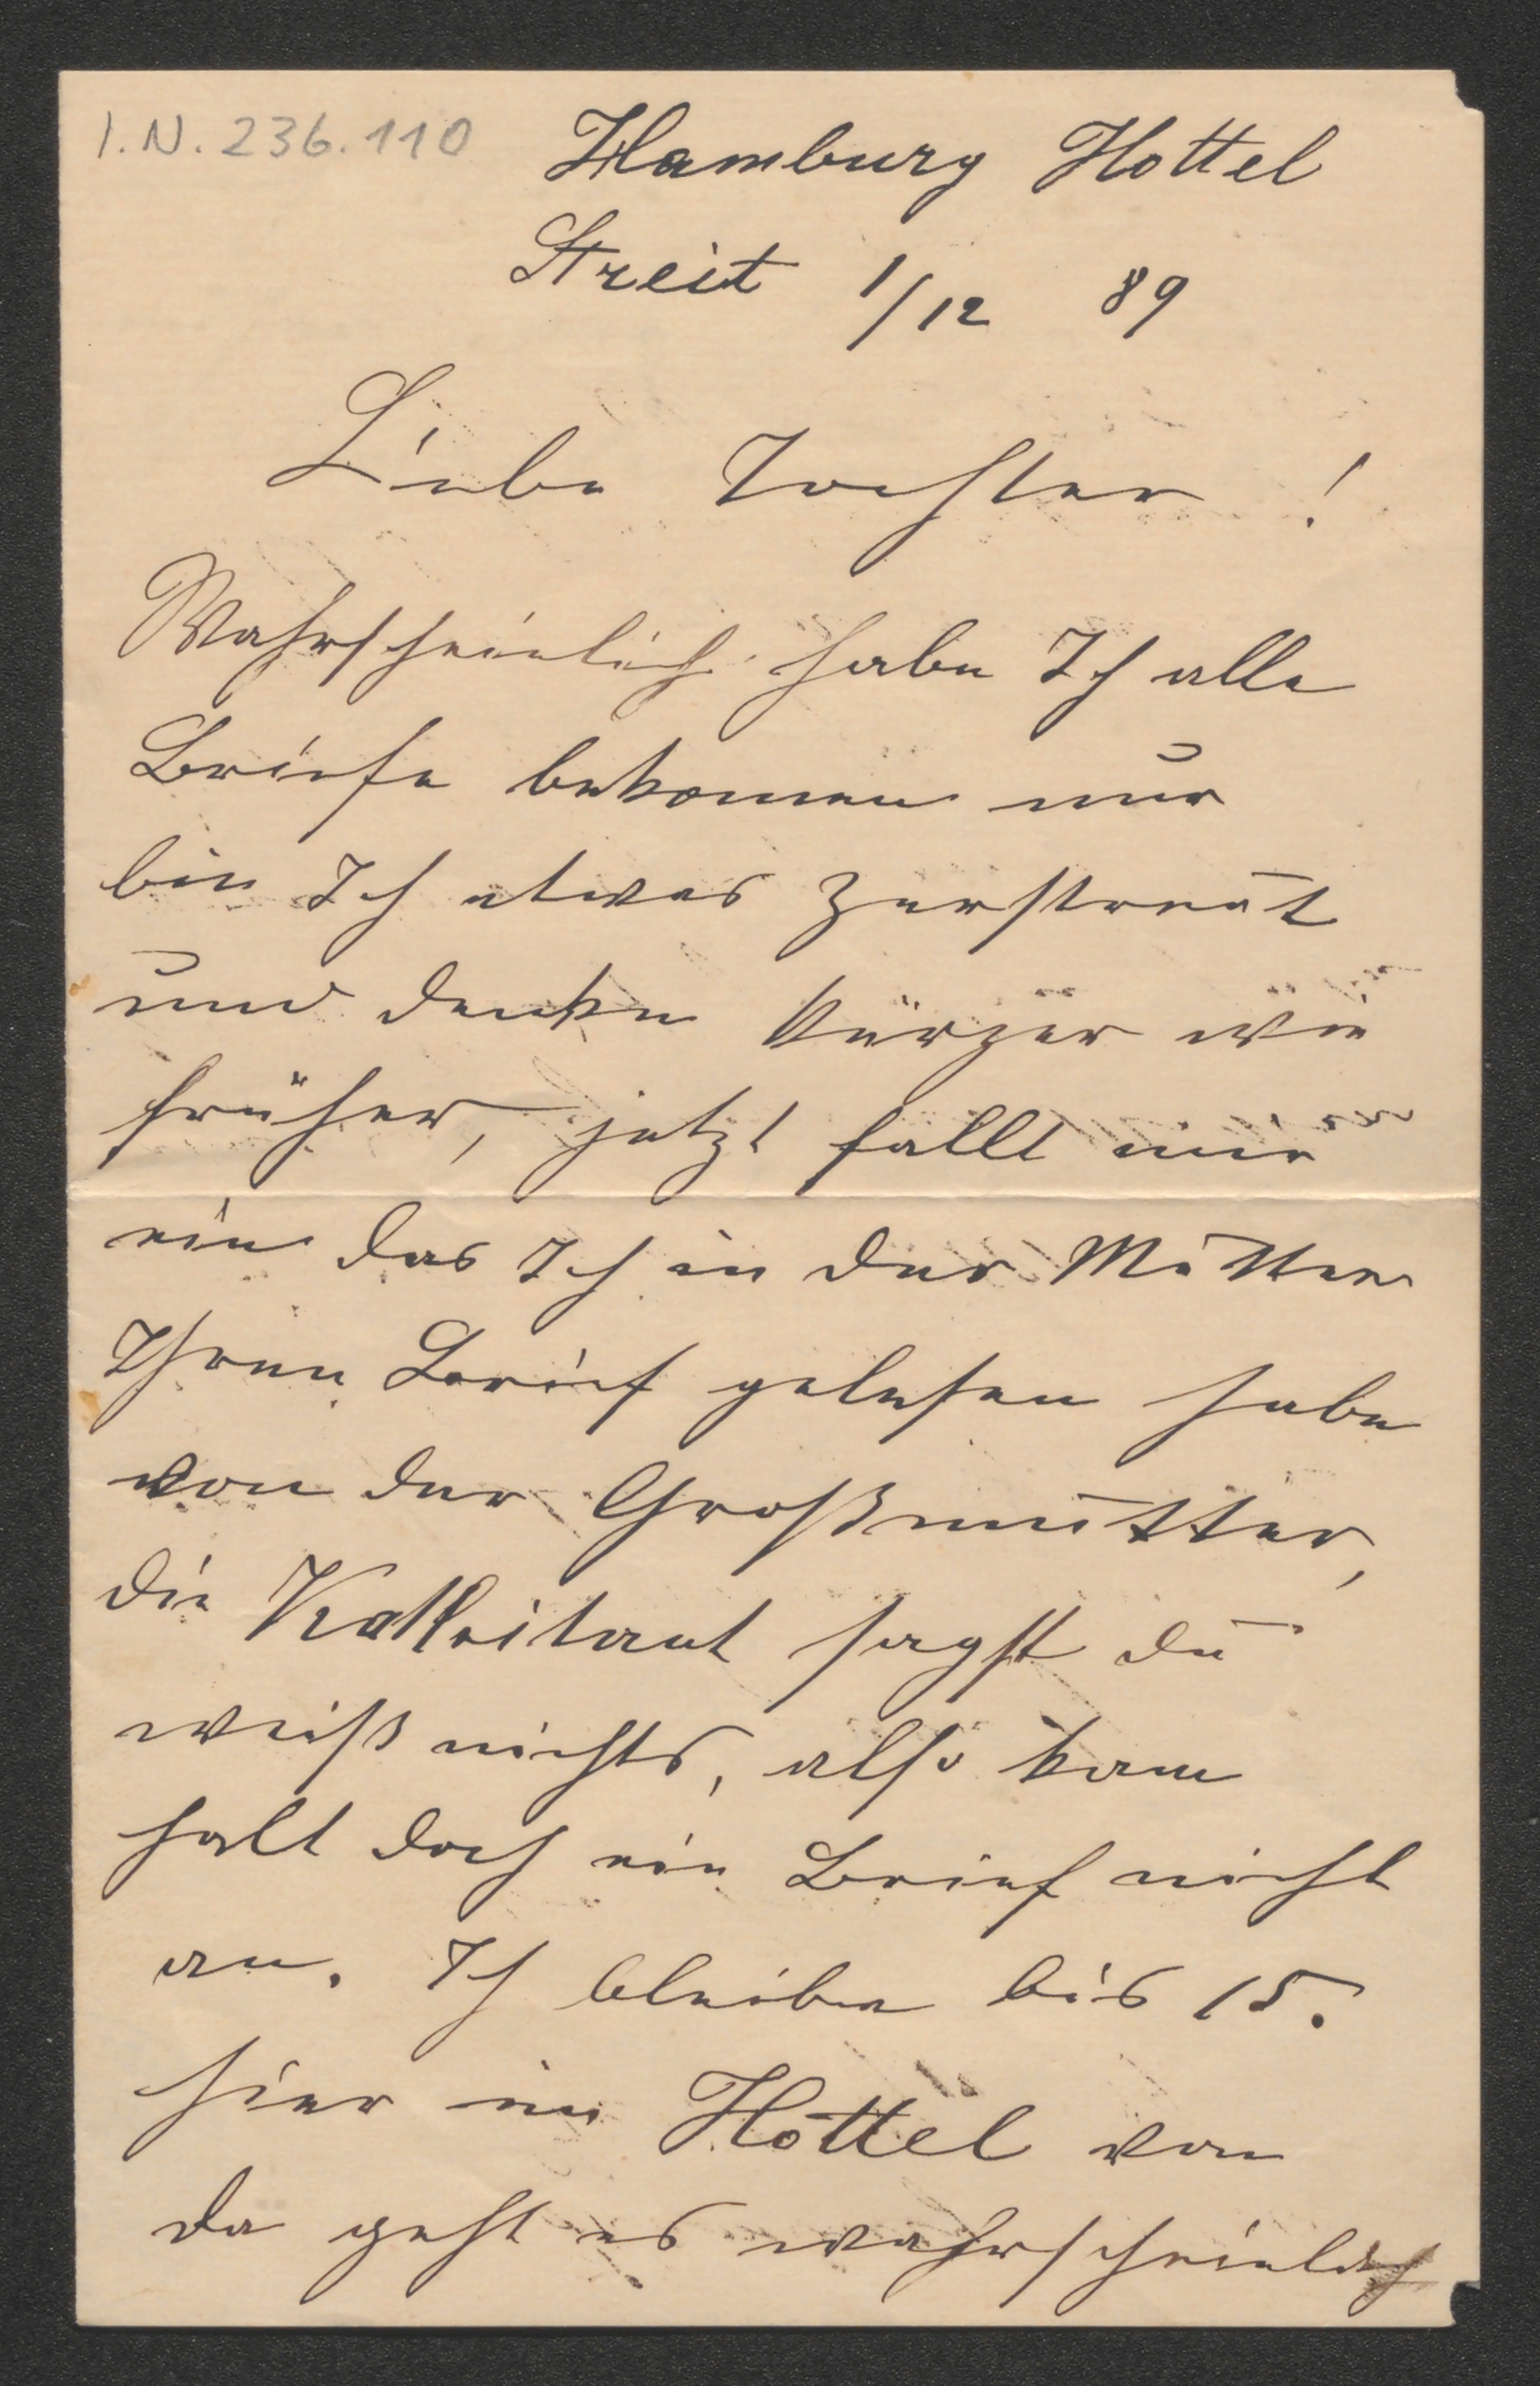 I.N. 236.110
Hamburg Hottel
Streit 1/12 89
Liebe Tochter!
Wahrscheinlich habe Ich alle
Briefe bekommen nur
bin Ich etwas zerstreut
und denke kürzer wie
früher, jetzt fallt mir
ein das Ich in der Mitten
Ihren Brief gelesen habe
von der Großmutter,
die sagst du
weiß nichts, also kam
halt doch ein Brief nicht
an. Ich bleibe bis 15.
hier im Hottel von
da geht es wahrscheinlich